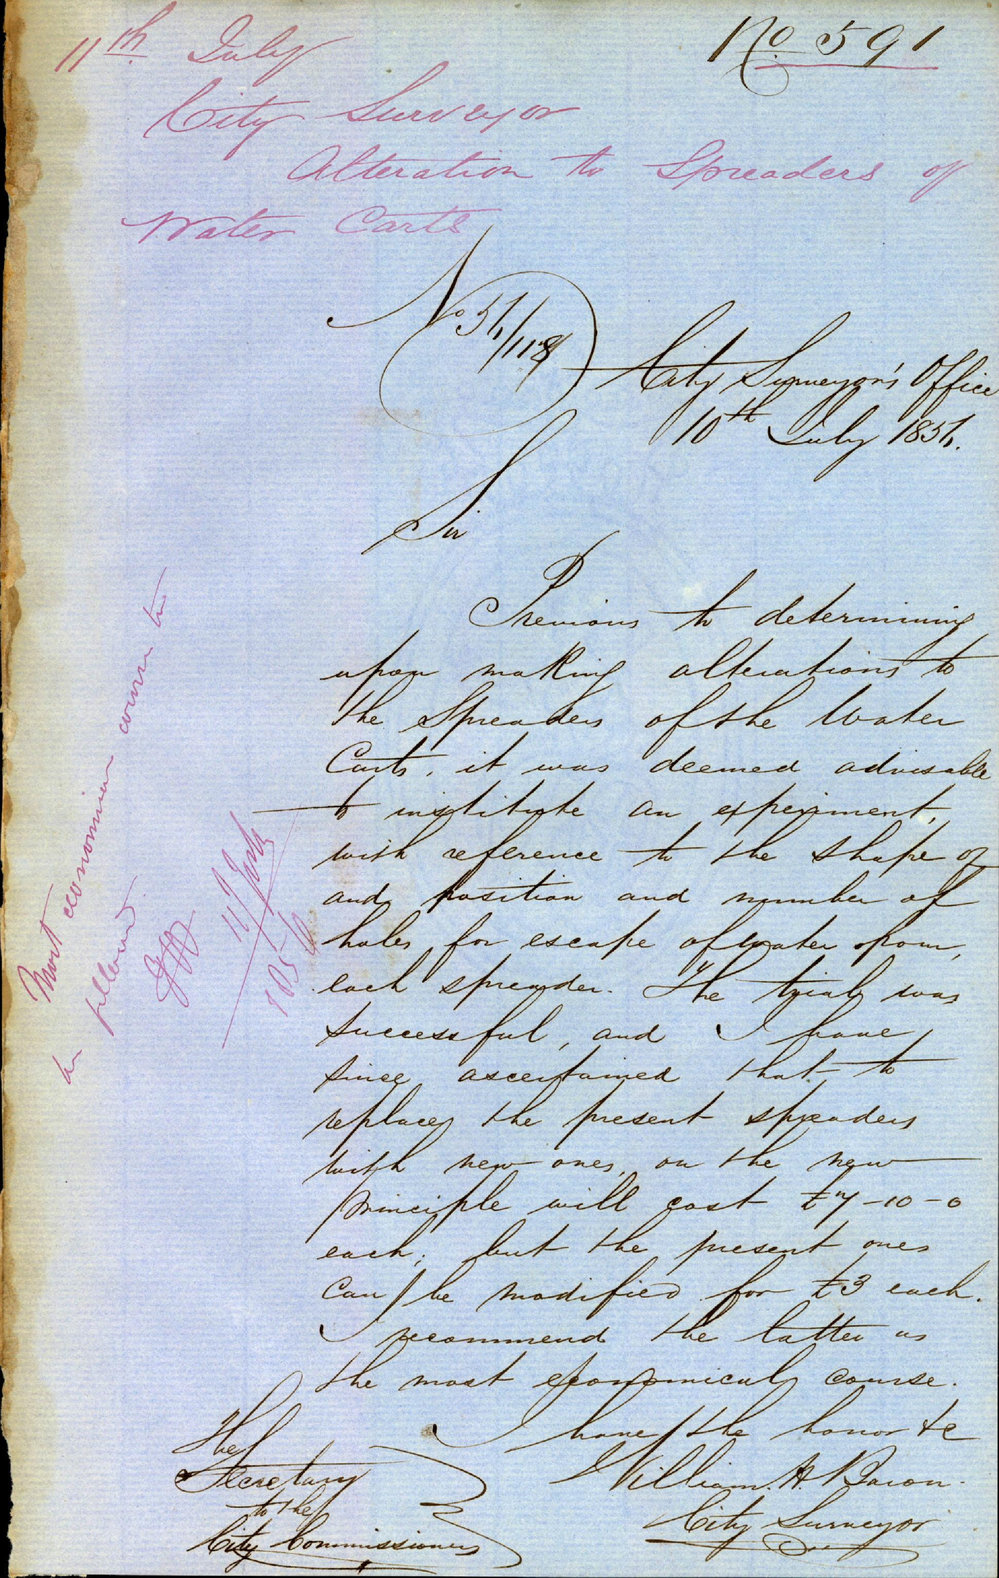 No 591
11th July
City Surveyor
Alteration to Spreaders of
Water Carts
No 56/118
City Surveyor's Office
10th July 1856.
Sir
Previous to determining
upon making alterations to
the Spreaders of the Water
Carts, it was deemed advisable
to institute an experiment,
with reference to the shape of
and position and number of
holes for escape of water from
each spreader. The trial was
successful, and I have
since ascertained that to
replace the present spreaders
with new ones, on the new
principle will cost £7-10-0
each; but the present ones
can be modified for £3 each.
I recommend the latter as
the most economical course.
I have the honor &c
William. H. Bacon.
City Surveyor
The
Secretary
to the
City Commissioners
Most economical course to
be followed.
11 July
1856